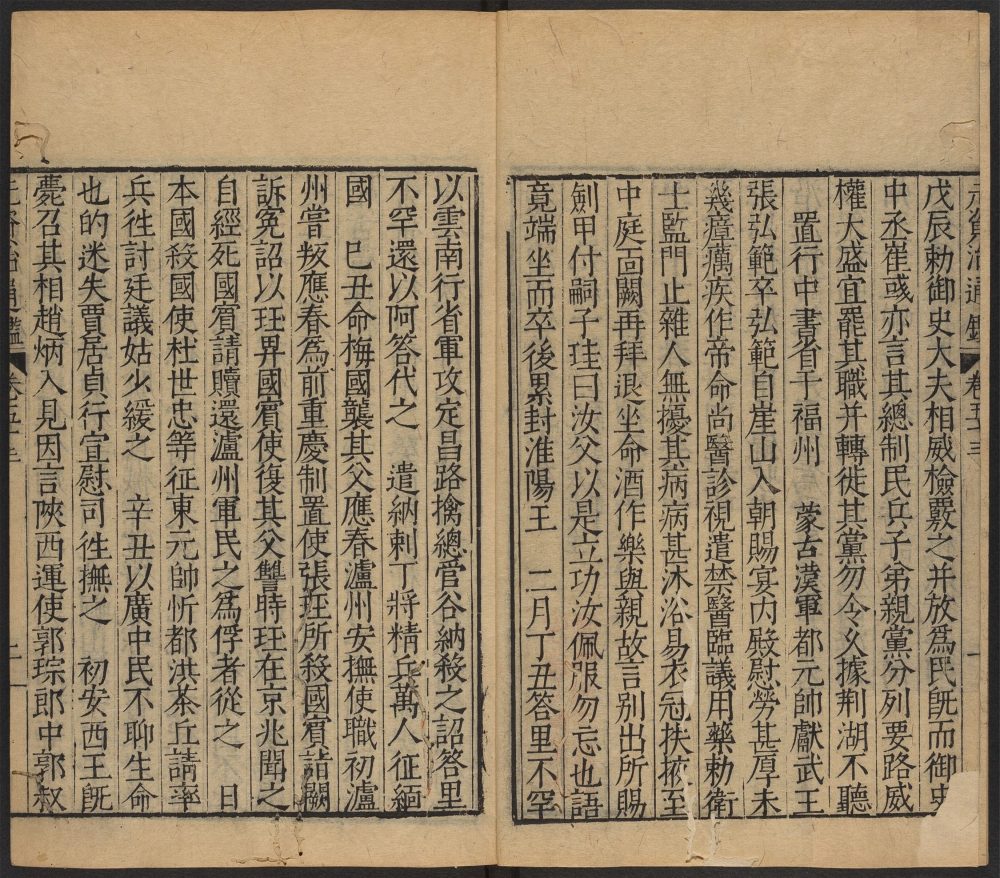 元資治通鑑 卷五十三 一
戊辰勅御史大夫相威檢覈之并放為民旣而御史
中丞崔彧亦言其總制民兵子弟親黨分列要路威
權大盛宜罷其職并轉徙其黨勿令久據荆湖不聽
置行中書省于福州 蒙古漢軍都元帥獻武王
張弘範卒弘範自崖山入朝賜宴內殿慰勞甚厚未
幾瘴癘疾作帝命尚醫診視遣禁醫臨議用藥勅衛
士監門止雜人無擾其病病甚沐浴易衣冠扶掖至
中庭面闕再拜退坐命酒作樂與親故言別出所賜
劍甲付嗣子珪曰汝父以是立功汝佩服勿忘也語
竟端坐而卒後累封淮陽王 二月丁丑答里不罕
以雲南行省軍攻定昌路擒總管谷納殺之詔答里
不罕還以阿答代之 遣納剌丁將精兵萬人征緬
國 巳丑命梅國賓襲其父應春瀘州安撫使職初瀘
州嘗叛應春為前重慶制置使張珏所殺國賓詣闕
訴寃詔以珏畀國賓使復其父讐時珏在京兆聞之
自經死國賓請贖還瀘州軍民之為俘者從之 日
本國殺國使杜世忠等征東元帥忻都洪茶丘請率
兵徃討廷議姑少緩之 辛丑以廣中民不聊生命
也的迷失賈居貞行宣慰司徃撫之 初安西王旣
薨召其相趙炳入見因言陜西運使郭琮郎中郭叔
元資治通鑑 卷五十三 二